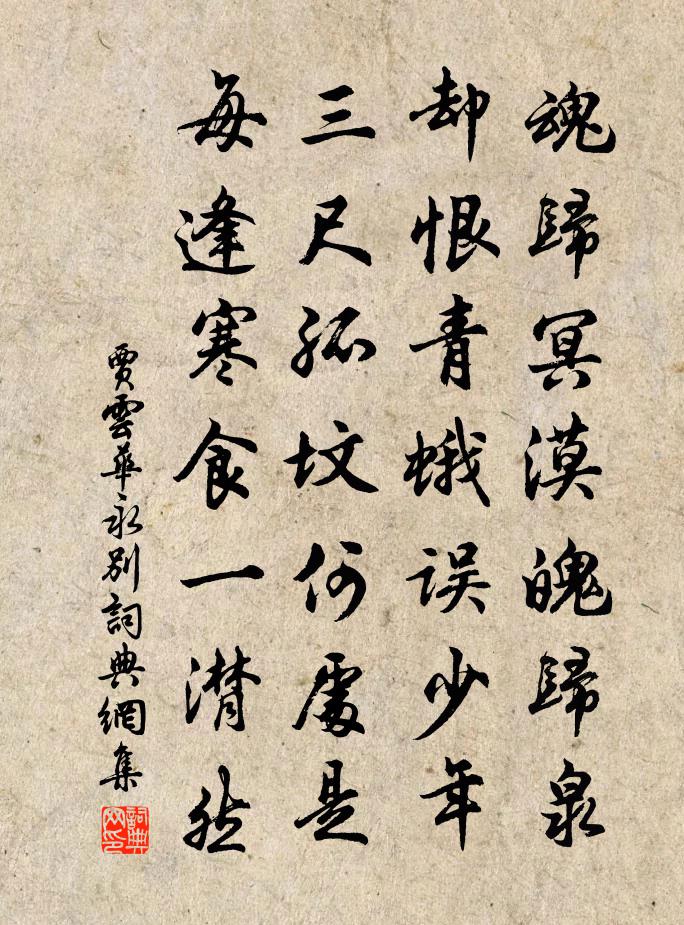 魂歸冥漠魄歸泉
却恨青蛾误少年
三尺孤坟何處是
每逢寒食一潸然
賈雲華永别詞典網集
詞典网印